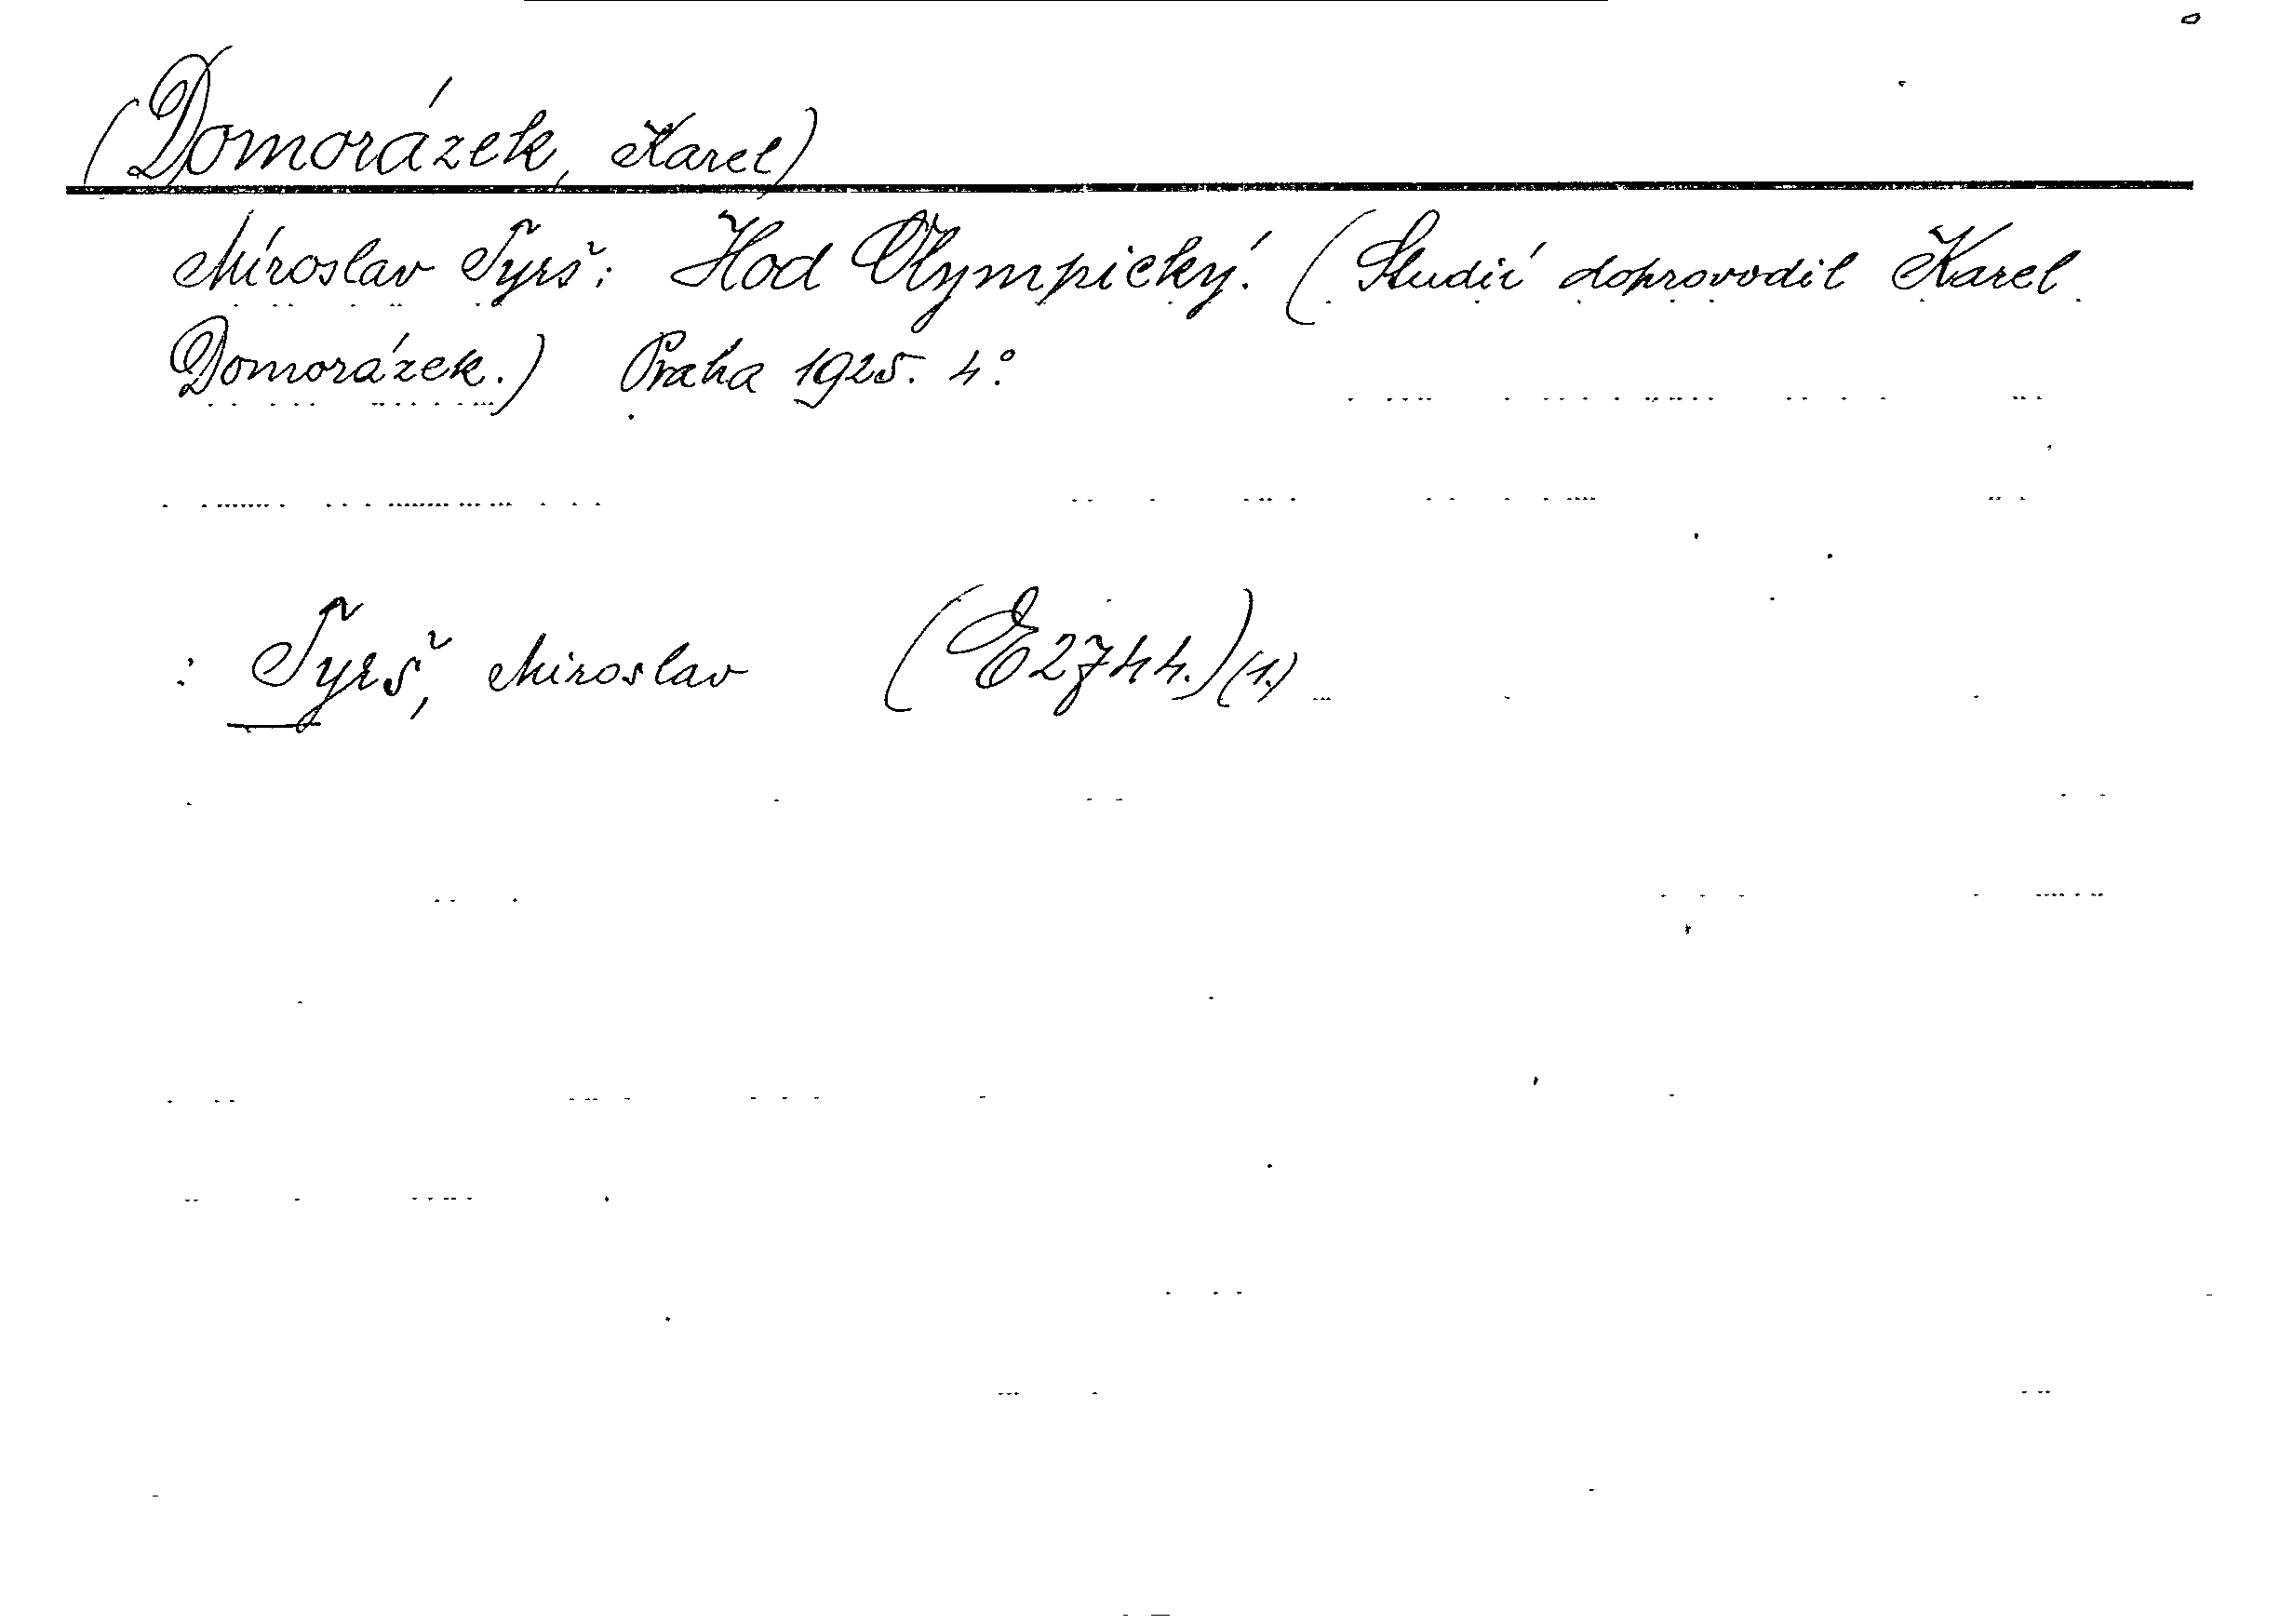 (Domorázek, Karel)
Miroslav Tyrš: Hod Olympický. (Studií doprovodil Karel
Domorázek.) Praha 1925. 4°.
: Tyrš, Miroslav (E2744.)(1.)